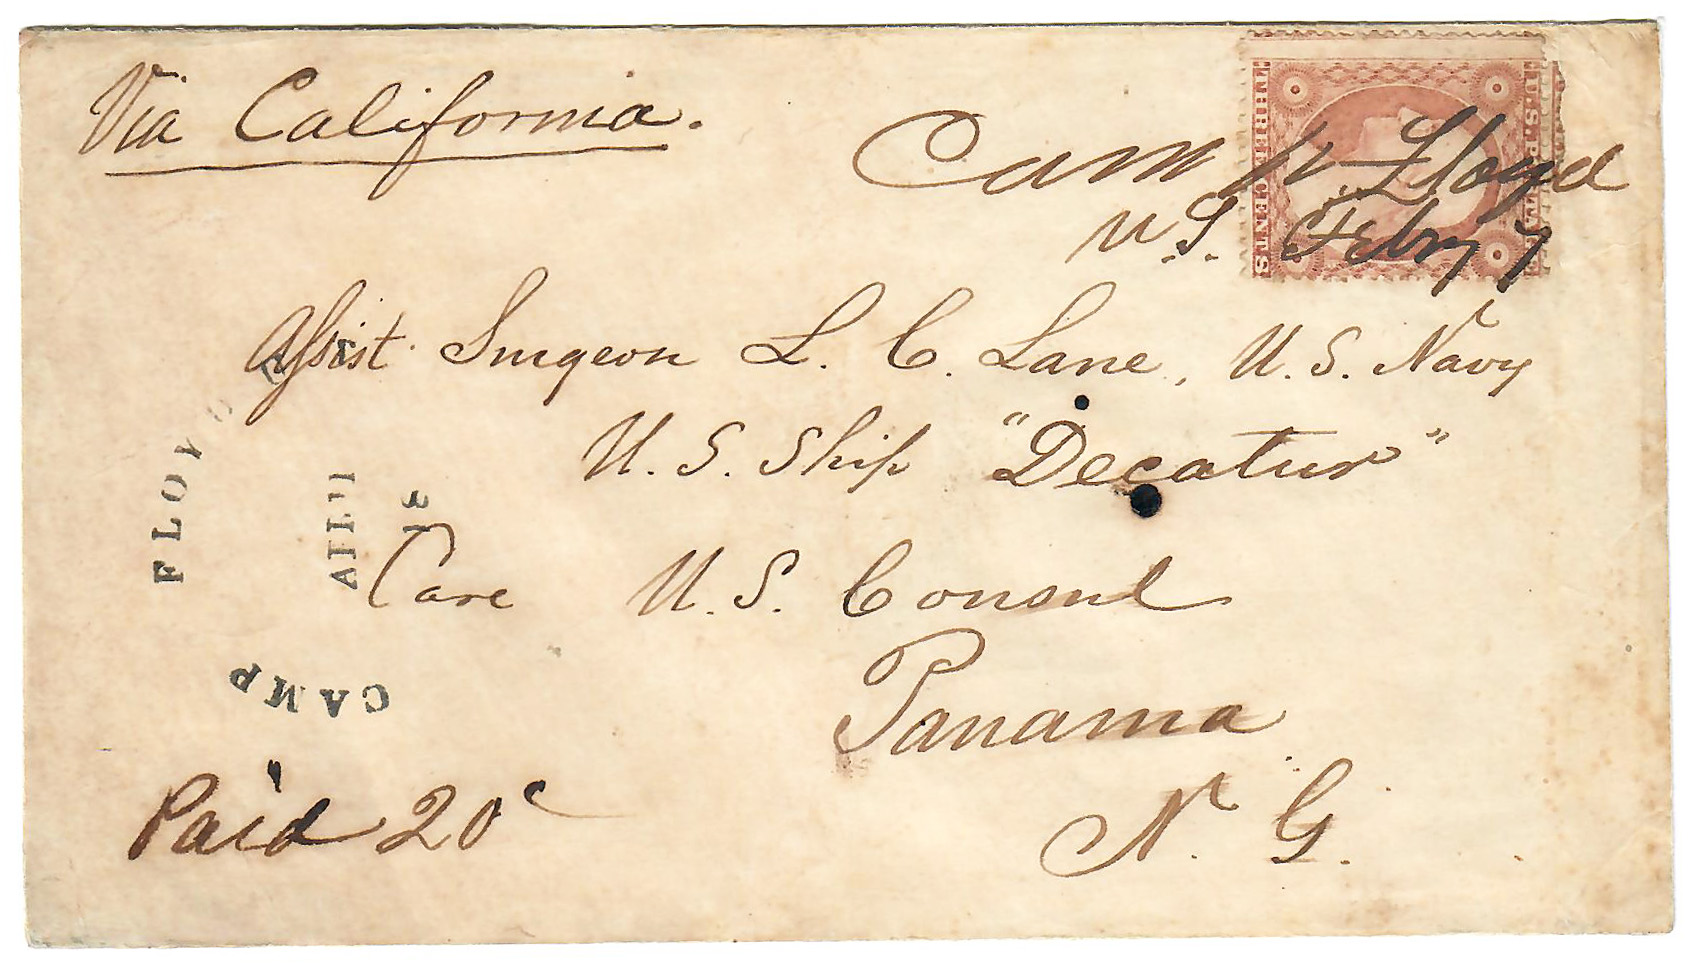 Via California.
Camp Floyd
U.T. Febry 7
THREE CENTS
U.S. POSTAGE
Assist. Surgeon L. C. Lane, U. S. Navy
U. S. Ship "Decatur"
Care U. S. Consul
Panama
N. G.
CAMP FLOY
18
Paid 20c